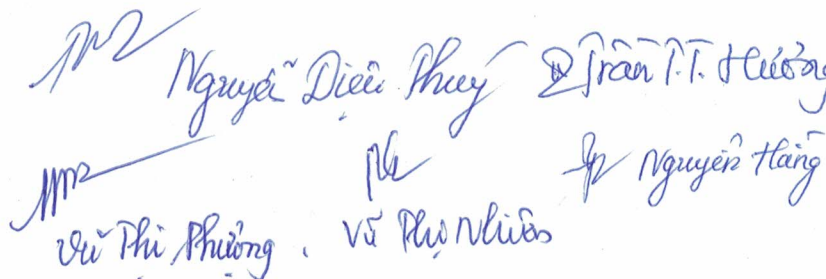 Nguyễn Diệu Thuý Trần T.T. Hưởng
Nguyễn Hằng
Vũ Thị Phượng. Vũ Thị Nhiên